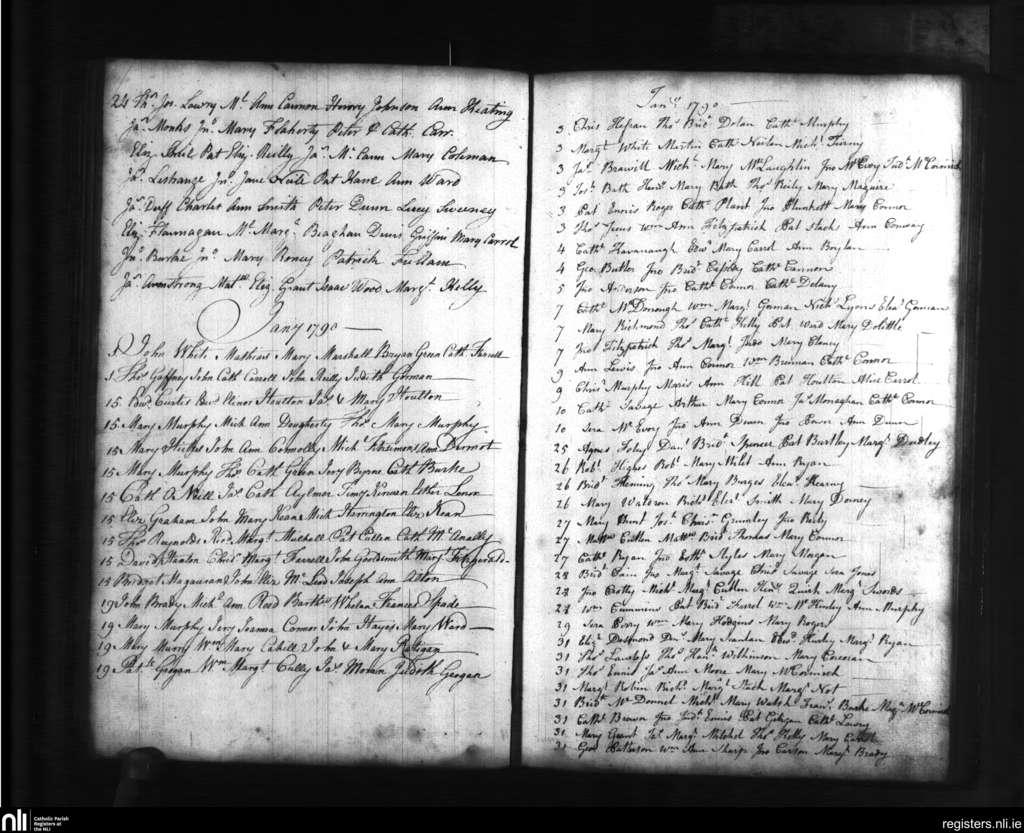 24 Thos. Jos. Lawry Mt. Ann Cannon Henry Johnson Ann Keating
Jas. Monks Jno. Mary Flaherty Peter & Cath. Carr.
Eliz. Pat Eliz. Reilly Jas. Mc. Cann Mary Coleman
Jas. Lestrange Jno. Jane Neile Pat Hane Ann Ward
Jno. Duff Charles Ann Smith Peter Dunn Lucy Sweeney
Eliz. Flannagan Mt. Marg. Beaghan Denis Mary Carrol
Jno. Burke Jno. Mary Roney Patrick Fullam
Jas. Armstrong Matw. Eliz. Grant Isaac Wood Margt. Kelly
Jany 1790
John White Mathias Mary Marshall Bryan Green Cath. Farrell
Thos. Gaffney John Cath Carroll John Reilly Judith Gorman
15 Edwd. Curtis Houlton Jas & Mary Houlton
15 Mary Murphy Mich Ann Dougherty Thos. Mary Murphy
15 Mary Hughes John Ann Connolly Mich Fitzsimons Ann Dermot
15 Mary Murphy Thos Cath Green Jery Byrne Cath Burke
15 Cath O Neill Jas Cath Aylmer Timy Kirwan Esther Lenox
15 Eliz Graham John Mary Kean Mich Harrington Eliz Kean
15 Thos Reynolds Margt. Pat Cullen Cath Mc Anally
15 David Stanton Margt. Farrell John Goldsmith Margt. Fitzgerald
15 Bridget Magauran John Eliz Joseph Ann Aston
19 John Brady Michl. Ann Reed Bartw Whelan Frances Spade
19 Mary Murphy Jery Joanna Connor John Hayes Mary Ward
19 Mary Murry Wm. Mary Cahill John & Mary Ratigan
19 Patk Geogan Wm. Margt. Cully Jas Moran Judith Geogan
Jany. 1790
3 Chris Thos. Brid. Dolan Cath. Murphy
3 Margt. White Martin Cath Michl. Tierny
3 Jas. Michl. Mary McLaughlin Jno McEvoy Judt. McCormick
3 Jos. Bath Henry Mary Bath Thos. Reily Mary Maguire
3 Pat Ennis Roger Cath. Plant Jno Plunkett Mary Connor
3 Thos. Wm Ann Fitzpatrick Pat Ann Conway
4 Cath. Kavanaugh Edwd. Mary Carrol Ann Boylan
4 Geo. Butler Jno Brid. Cassidy Cath. Cannon
5 Jno Anderson Jno Cath. Connor Cath. Delany
7 Cath. McDonough Wm Margt. Gorman Nich. Lyons Eliz. Gorman
7 Mary Richmond Thos. Cath. Kelly Pat. Ward Mary Dolittle
7 Jno Fitzpatrick Thos. Margt. Mary Cluney
9 Ann Lewis Jno Ann Connor Wm Brennan Cath. Connor
9 Chris. Murphy Maris Ann Hill Pat Houlton Alice Carrol
10 Cath. Savage Arthur Mary Connor Jas. Monaghan Cath. Connor
10 Sera McEvoy Jno Ann Dunn Jno Power Ann Dunn
25 Agnes Foley Danl. Bridt. Spencer Pat Burtley Margt. Dudley
26 Robt. Hignes Robt. Mary Ann Ryan
26 Brid. Fleming Thos. Mary Burges Elen. Kearny
26 Mary Waldron Richd. Elez. Smith Mary Dorney
27 Mary Jos. Chris. Grumley Jno Reily
27 Mattw Cullen Mattw Brid. Thomas Mary Connor
27 Cath. Ryan Jno Esth. Styles Mary Magan
28 Brid. Jno Margt. Savage Chris. Savage Sera Jones
28 Jno Michl. Margt. Cullen Henry Quirk Margt. Swords
28 Wm Cummins Pat Brid. Farrel Wm McKinley Ann Murphy
29 Sera Wm Mary Hodgins Mary Rogers
31 Eliz. Desmond Mary Edwd. Margt. Ryan
31 Thos. Lawless Thos. Hana. Wilkinson Mary Corcoran
31 Thos. Ennis Jas. Ann Moore Mary McCormick
31 Margt. Richd. Margt. Stack Margt. Not
31 Brid. McDonnel Michl. Mary Walsh Frans. Burke McCormick
31 Cath. Brown Jno Judt. Ennis Pat Cath. Lawry
31 Mary Grant Jas. Margt. Mitchel Thos. Kelly Mary
31 Geo. Patterson Wm Ann Sharp Jno Carson Margt. Brady
nli
Catholic Parish
Registers at
the NLI
registers.nli.ie